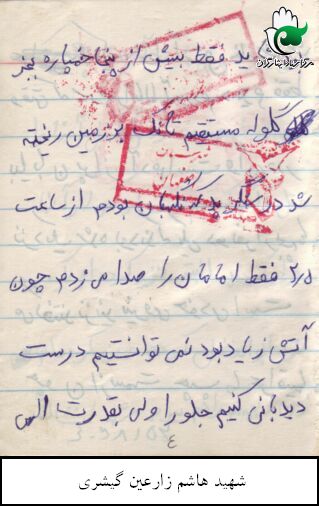 ید فقط بیش از پنجاه خمپاره بجز
گلوله مستقیم تانک بر زمین ریخته
شد در سنگر نگهبان بودم از ساعت
۲ فقط امامان را صدا می زدم چون
آتش زیاد بود نمی توانستیم درست
دیدبانی کنیم جلو را ولی بقدرت الله
۴
شهید هاشم زارعین گیشری